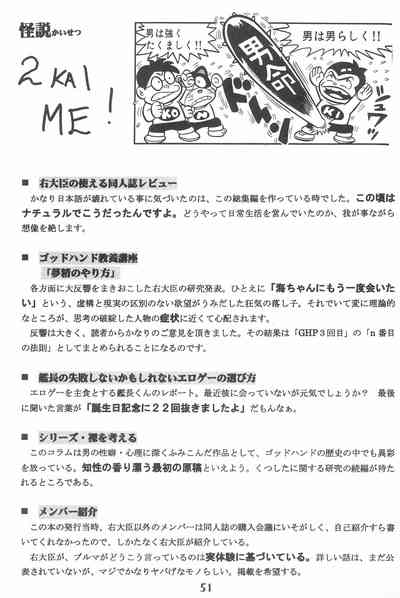 怪説かいせつ
2 KAI
ME!
男は強く
たくましく!!
男命
ドーン!
男は男らしく!!
ジュワッ
■ 右大臣の使える同人誌レビュー
かなり日本語が壊れている事に気づいたのは、この総集編を作っている時でした。この頃は
ナチュラルでこうだったんですよ。どうやって日常生活を営んでいたのか、我が事ながら
想像を絶します。
■ ゴッドハンド教養講座
「夢精のやり方」
各方面に大反響をまきおこした右大臣の研究発表。ひとえに「海ちゃんにもう一度会いた
い」という、虚構と現実の区別のない欲望がうみだした狂気の落し子。それでいて変に理論的
なところが、思考の破綻した人物の症状に近くて心配されます。
反響は大きく、読者からかなりのご意見を頂きました。その結果は「GHP3回目」の「n番目
の法則」としてまとめられることになるのです。
■ 艦長の失敗しないかもしれないエロゲーの選び方
エロゲーを主食とする艦長くんのレポート。最近彼に会っていないが元気でしょうか? 最後
に聞いた言葉が「誕生日記念に22回抜きましたよ」だもんなぁ。
■ シリーズ・裸を考える
このコラムは男の性癖・心理に深くふみこんだ作品として、ゴッドハンドの歴史の中でも異彩
を放っている。知性の香り漂う最初の原稿といえよう。くつしたに関する研究の続編が待た
れるところである。
■ メンバー紹介
この本の発行当時、右大臣以外のメンバーは同人誌の購入会議にいそがしく、自己紹介すら書
いてくれなかったので、しかたなく右大臣が紹介している。
右大臣が、ブルマがどうこう言っているのは実体験に基づいている。詳しい話は、まだ公
表されていないが、マジでかなりヤバげなモノらしい。掲載を希望する。
51